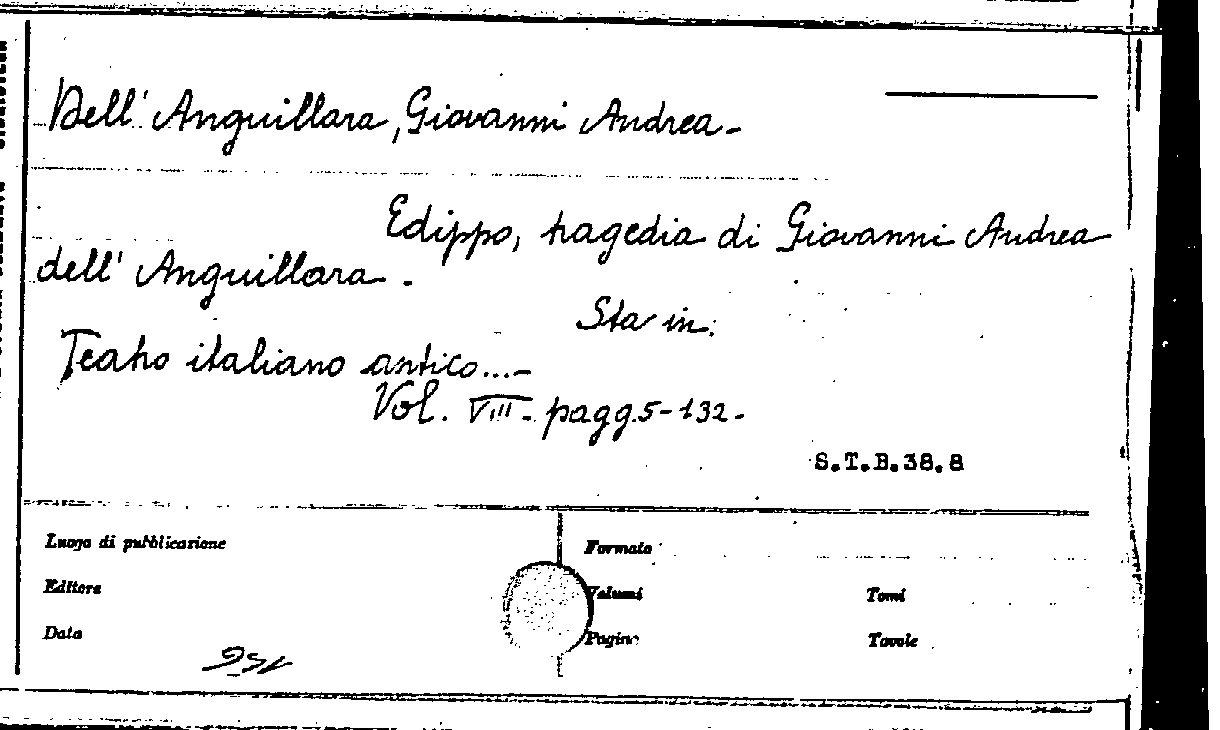 Dell' Anguillara, Giovanni Andrea -
Edippo, tragedia di Giovanni Andrea
dell' Anguillara.
Sta in:
Teatro italiano antico...-
Vol. VIII - pagg. 5-132.
S.T.B.38.8
Luogo di pubblicazione
Formato
Editore
Volumi
Tomi
Data
Pagine
Tavole